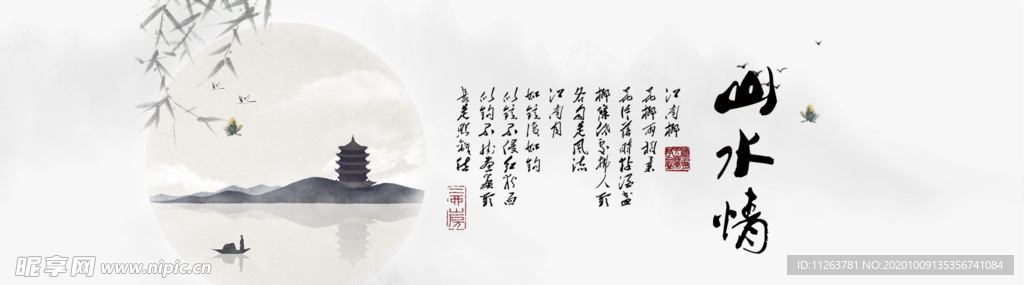 山水情
江南柳
花柳兩相柔
花片落時粘酒盞
柳條低處拂人頭
各自是風流
江南月
如鏡復如鉤
似鏡不侵紅粉面
似鉤不掛畫簾頭
長是照離愁
昵享网 www.nipic.cn
ID:11263781 NO:20201009135356741084